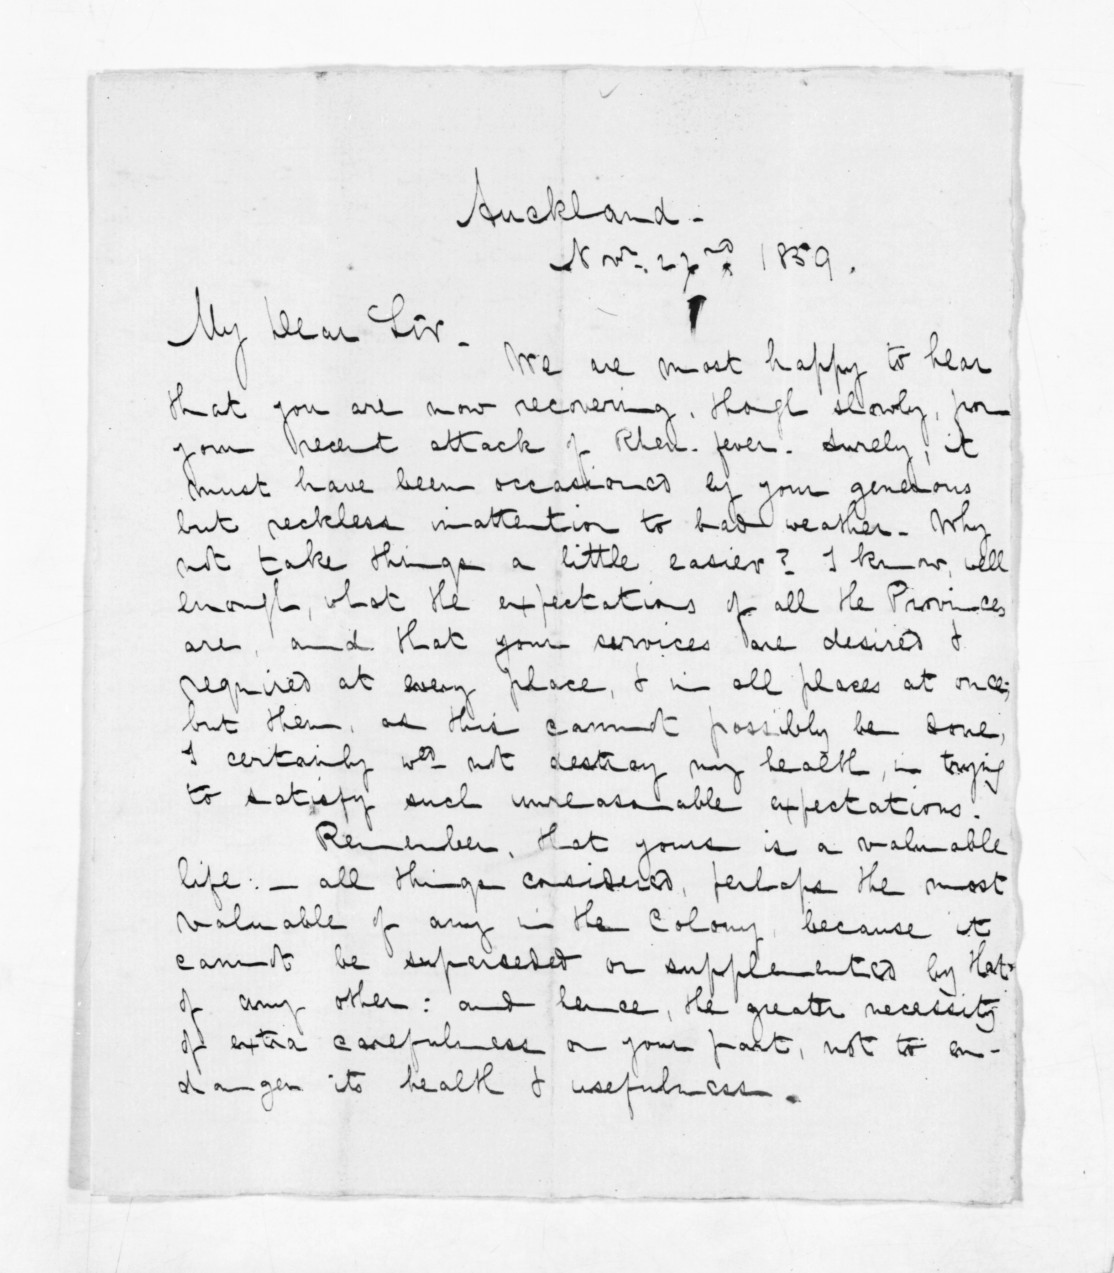 Auckland -
Novr. 22nd 1859.
My Dear Sir -
We are most happy to hear
that you are now recovering, though slowly, from
your recent attack of Rheu. fever. Surely, it
must have been occasioned by your generous
but reckless inattention to bad weather - Why
not take things a little easier? I know, well
enough, what the expectations of all the Provinces
are, and that your services are desired &
required at every place, & in all places at once;
but then, as this cannot possibly be done,
I certainly wd. not destroy my health, in trying
to satisfy such unreasonable expectations.
Remember, that yours is a valuable
life: - all things considered, perhaps the most
valuable of any in the Colony, because it
cannot be superseded or supplemented by that
of any other: and hence, the greater necessity
of extra carefulness on your part, not to en-
danger its health & usefulness.